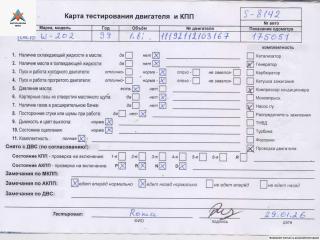 Карта тестирования двигателя и КПП
S-8142
№ авто
Марка, модель Год Объём № двигателя Показания одометра
W-202 99 1.8i 11192112103167 175051
1. Наличие охлаждающей жидкости в масле: да нет
2. Наличие масла в охлаждающей жидкости: да нет
3. Пуск и работа холодного двигателя: отлично норма плохо не завелся
4. Пуск и работа прогретого двигателя: отлично норма плохо не завелся
5. Давление масла: есть нет
6. Картерные газы из отверстия масляного щупа: да нет
7. Наличие газов в расширительном бачке: норма нет
8. Посторонние стуки или шумы при работе: да нет
9. Дымность и цвет выхлопа: норма
10. Состояние оцепления: норма
11. Комплектность: полная
комплектность
Катализатор
Генератор
Карбюратор
Катушка зажигания
Компрессор кондиционера
Моновпрыск
Насос гу
Распределитель зажигания
ТНВД
Турбина
Форсунки
Проверка двигателя
Снято с ДВС (по согласованию):
Состояние КПП - проверка на включение: 1-я 2-я 3-я 4-я 5-я R
Состояние АКПП - проверка на включение: P R N D
Замечания по МКПП:
Замечания по АКПП: едет вперёд нормально едет назад нормально не едет вперёд не едет назад
Замечания по ДВС:
Тестировал: Roma 29.01.26
ФИО подпись дата